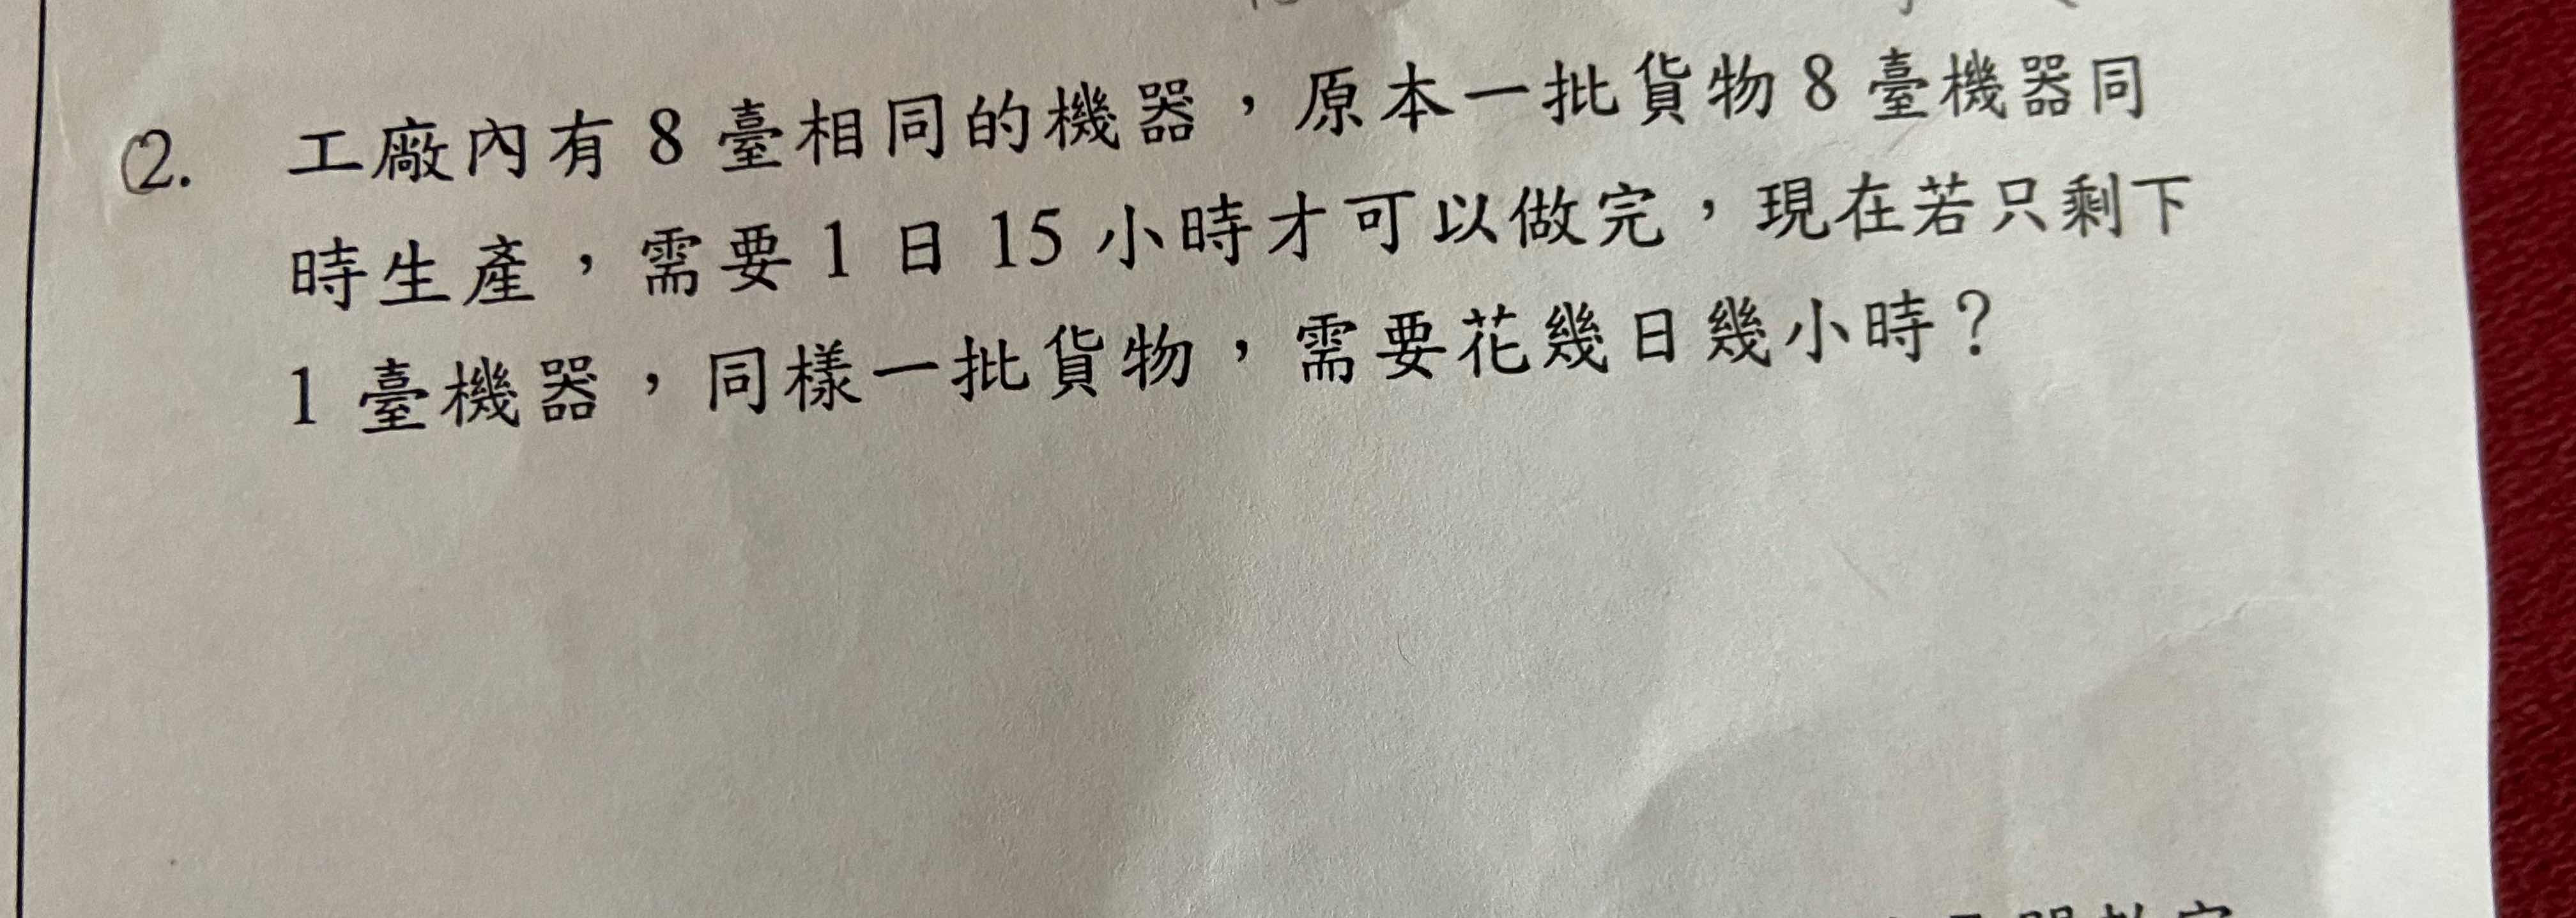 2. 工廠內有 8 臺相同的機器，原本一批貨物 8 臺機器同
時生產，需要 1 日 15 小時才可以做完，現在若只剩下
1 臺機器，同樣一批貨物，需要花幾日幾小時？